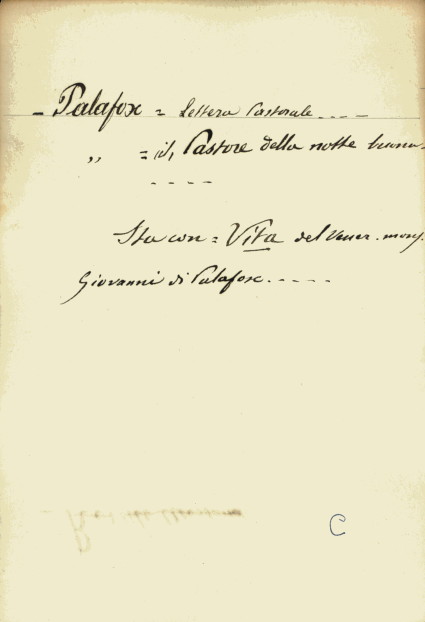 - Palafox = Lettera Pastorale ....
" = il, Pastore della notte buona.
- - - -
Sta con = Vita del Vener. mons.
Giovanni di Palafox.....
C